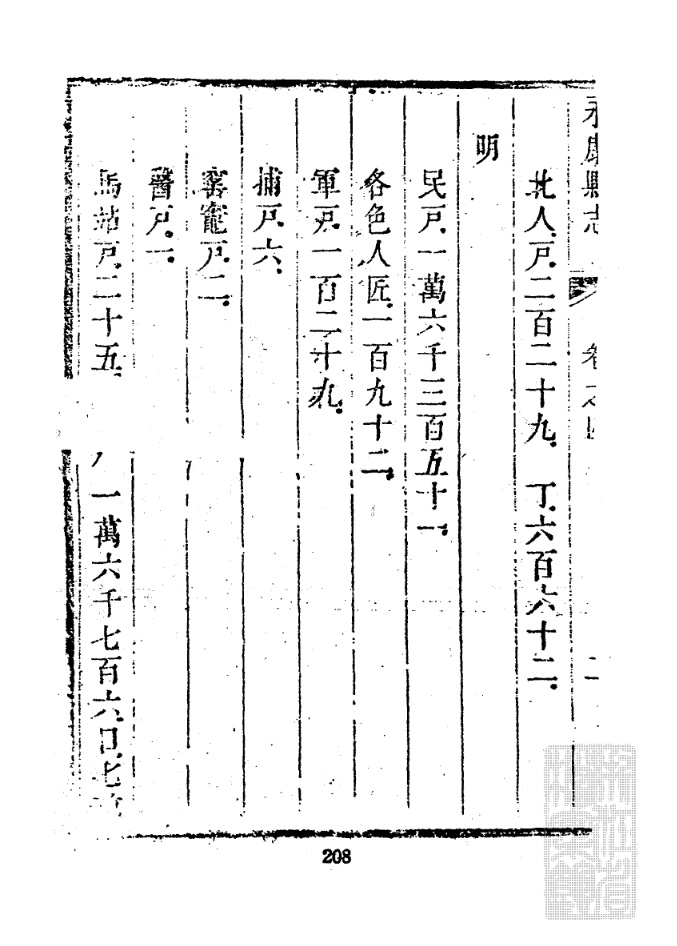 永康縣志 卷之四 二
北人戶二百二十九 丁六百六十二
明
民戶一萬六千三百五十一
各色人匠一百九十二
軍戶一百二十九
捕戶六
窰竈戶二
醫戶一
馬站戶二十五
一萬六千七百六口七
208